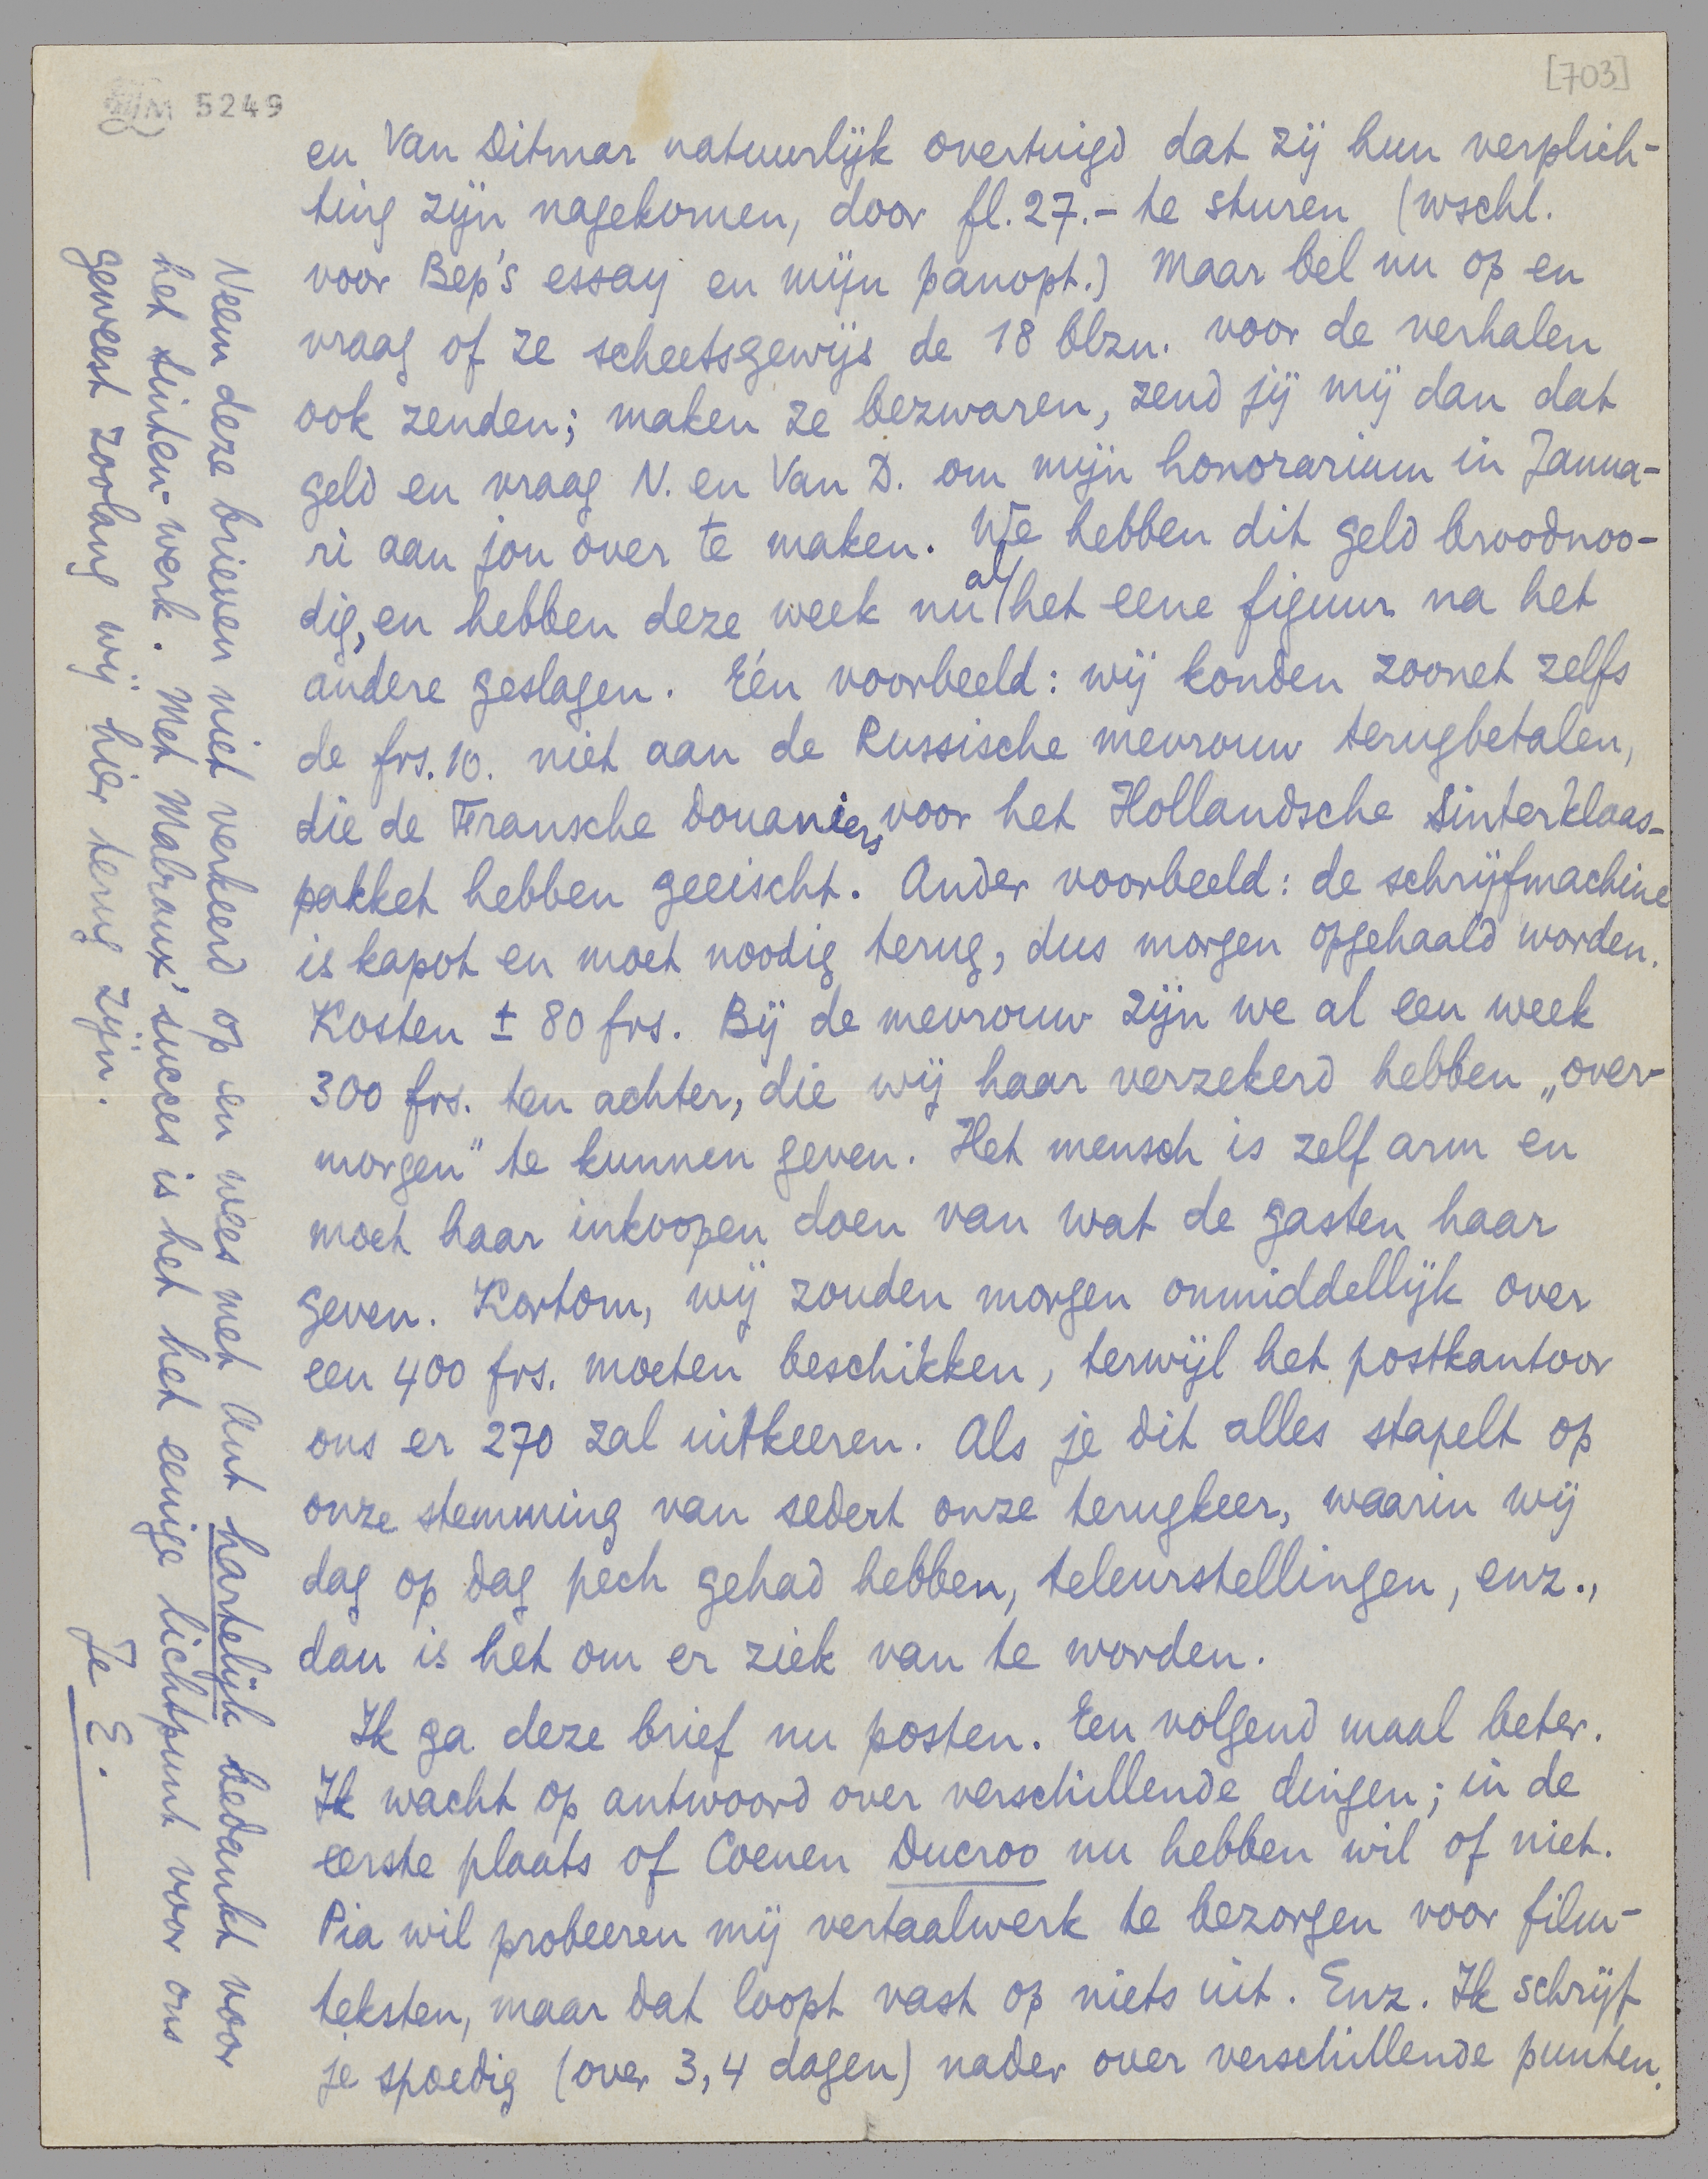 [703]
LM 5249
en Van Ditmar natuurlijk overtuigd dat zij hun verplich-
ting zijn nagekomen, door fl. 27.- te sturen (wschl.
voor Bep's essay en mijn panopt.) Maar bel nu op en
vraag of ze scheetsgewijs de 18 blzn. voor de verhalen
ook zenden; maken ze bezwaren, zend jij mij dan dat
geld en vraag N. en Van D. om mijn honorarium in Janua-
ri aan jou over te maken. We hebben dit geld broodnoo-
dig, en hebben deze week nu al het eene figuur na het
andere geslagen. Eén voorbeeld: wij konden zoonet zelfs
de frs. 10. niet aan de Russische mevrouw terugbetalen,
die de Fransche douaniers voor het Hollandsche Sinterklaas-
pakket hebben geeischt. Ander voorbeeld: de schrijfmachine
is kapot en moet noodig terug, dus morgen opgehaald worden.
Kosten ± 80 frs. Bij de mevrouw zijn we al een week
300 frs. ten achter, die wij haar verzekerd hebben „over-
morgen" te kunnen geven. Het mensch is zelf arm en
moet haar inkoopen doen van wat de gasten haar
geven. Kortom, wij zouden morgen onmiddellijk over
een 400 frs. moeten beschikken, terwijl het postkantoor
ons er 270 zal uitkeeren. Als je dit alles stapelt op
onze stemming van sedert onze terugkeer, waarin wij
dag op dag pech gehad hebben, teleurstellingen, enz.,
dan is het om er ziek van te worden.
Ik ga deze brief nu posten. Een volgend maal beter.
Ik wacht op antwoord over verschillende dingen; in de
eerste plaats of Coenen Ducroo nu hebben wil of niet.
Pia wil probeeren mij vertaalwerk te bezorgen voor film-
teksten, maar dat loopt vast op niets uit. Enz. Ik schrijf
je spoedig (over 3, 4 dagen) nader over verschillende punten.
Neem deze brieven niet verkeerd op en wees met Ant hartelijk bedankt voor
het sinten-werk. Met Malraux' succes is het het eenige lichtpunt voor ons
geweest zoolang wij hier terug zijn.
Je E.